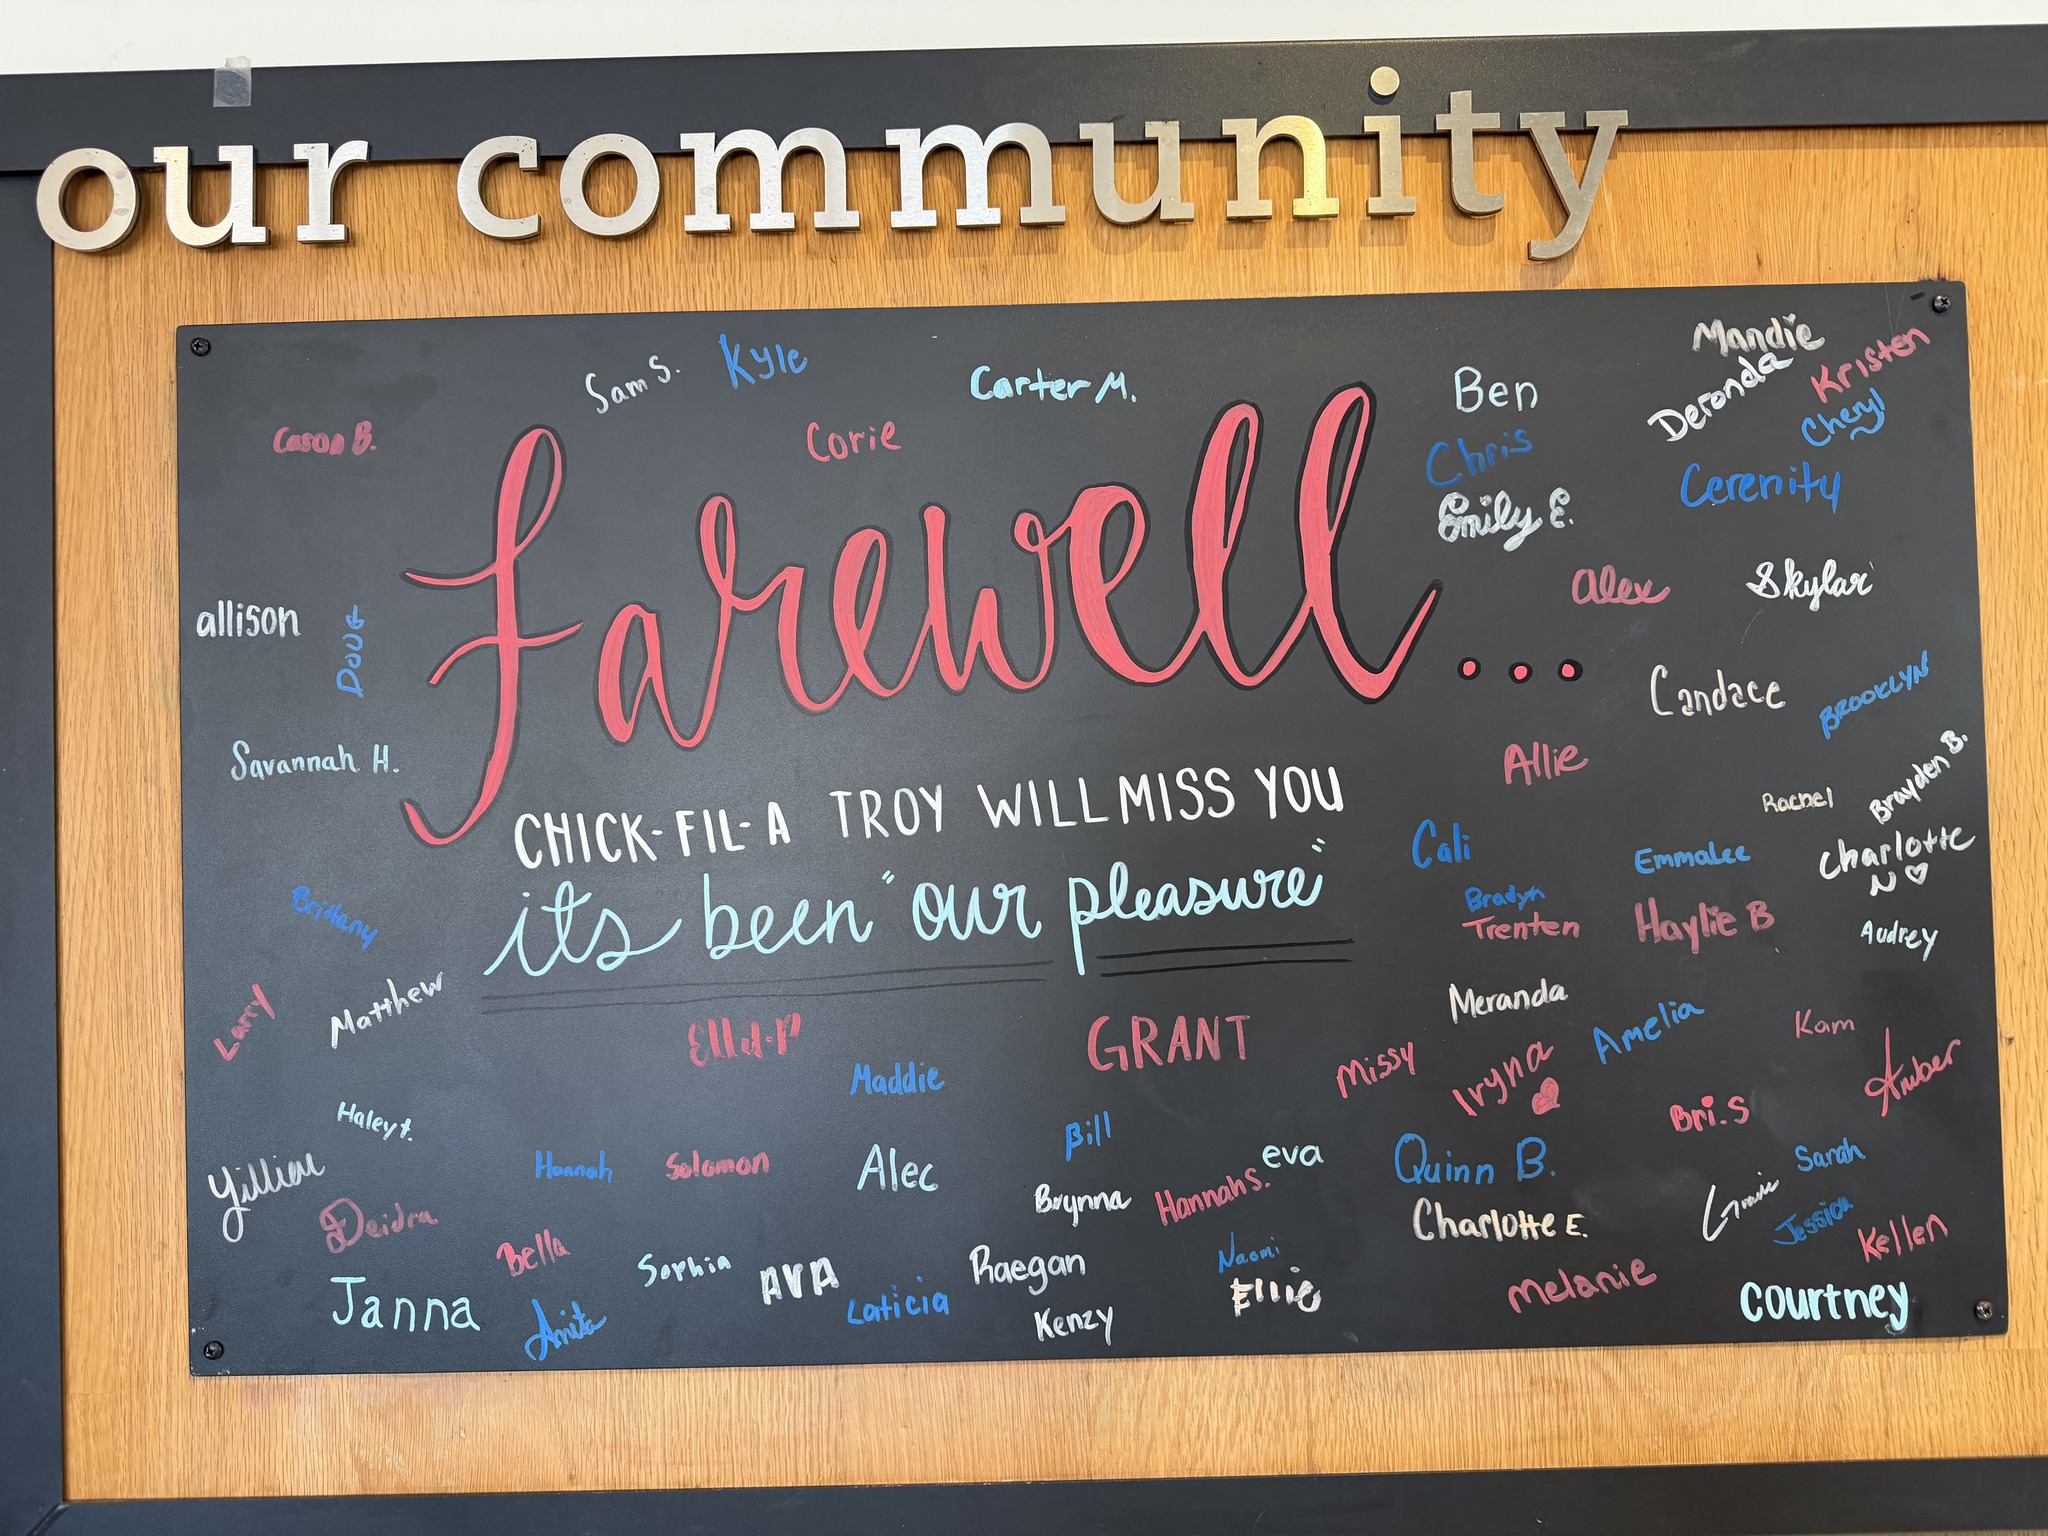 our community
Mandie
Sam S.
Kyle
Kristen
Carter M.
Ben
Deronda
Cheryl
Cason B.
Corie
Chris
Cerenity
Emily E.
Farewell...
Alex
Skylar
allison
DOUG
Candace
BROOKLYN
Savannah H.
Allie
Brayden B.
Rachel
CHICK-FIL-A TROY WILL MISS YOU
Cali
Emmalee
Charlotte
N ♡
it's been "our pleasure"
Bradyn
Brittany
Trenten
Haylie B
Audrey
Larry
Matthew
Meranda
Ella.P
GRANT
Amelia
Kam
Maddie
Missy
Iryna
Amber
Haley t.
Bill
Bri.S
Jillian
Hannah
Solomon
Alec
eva
Quinn B.
Sarah
Brynna
Hannah S.
Gracie
Deidra
Charlotte E.
Jessica
Bella
Sophia
AVA
Raegan
Naomi
Kellen
Janna
Anita
Laticia
Kenzy
Ellie
Melanie
Courtney